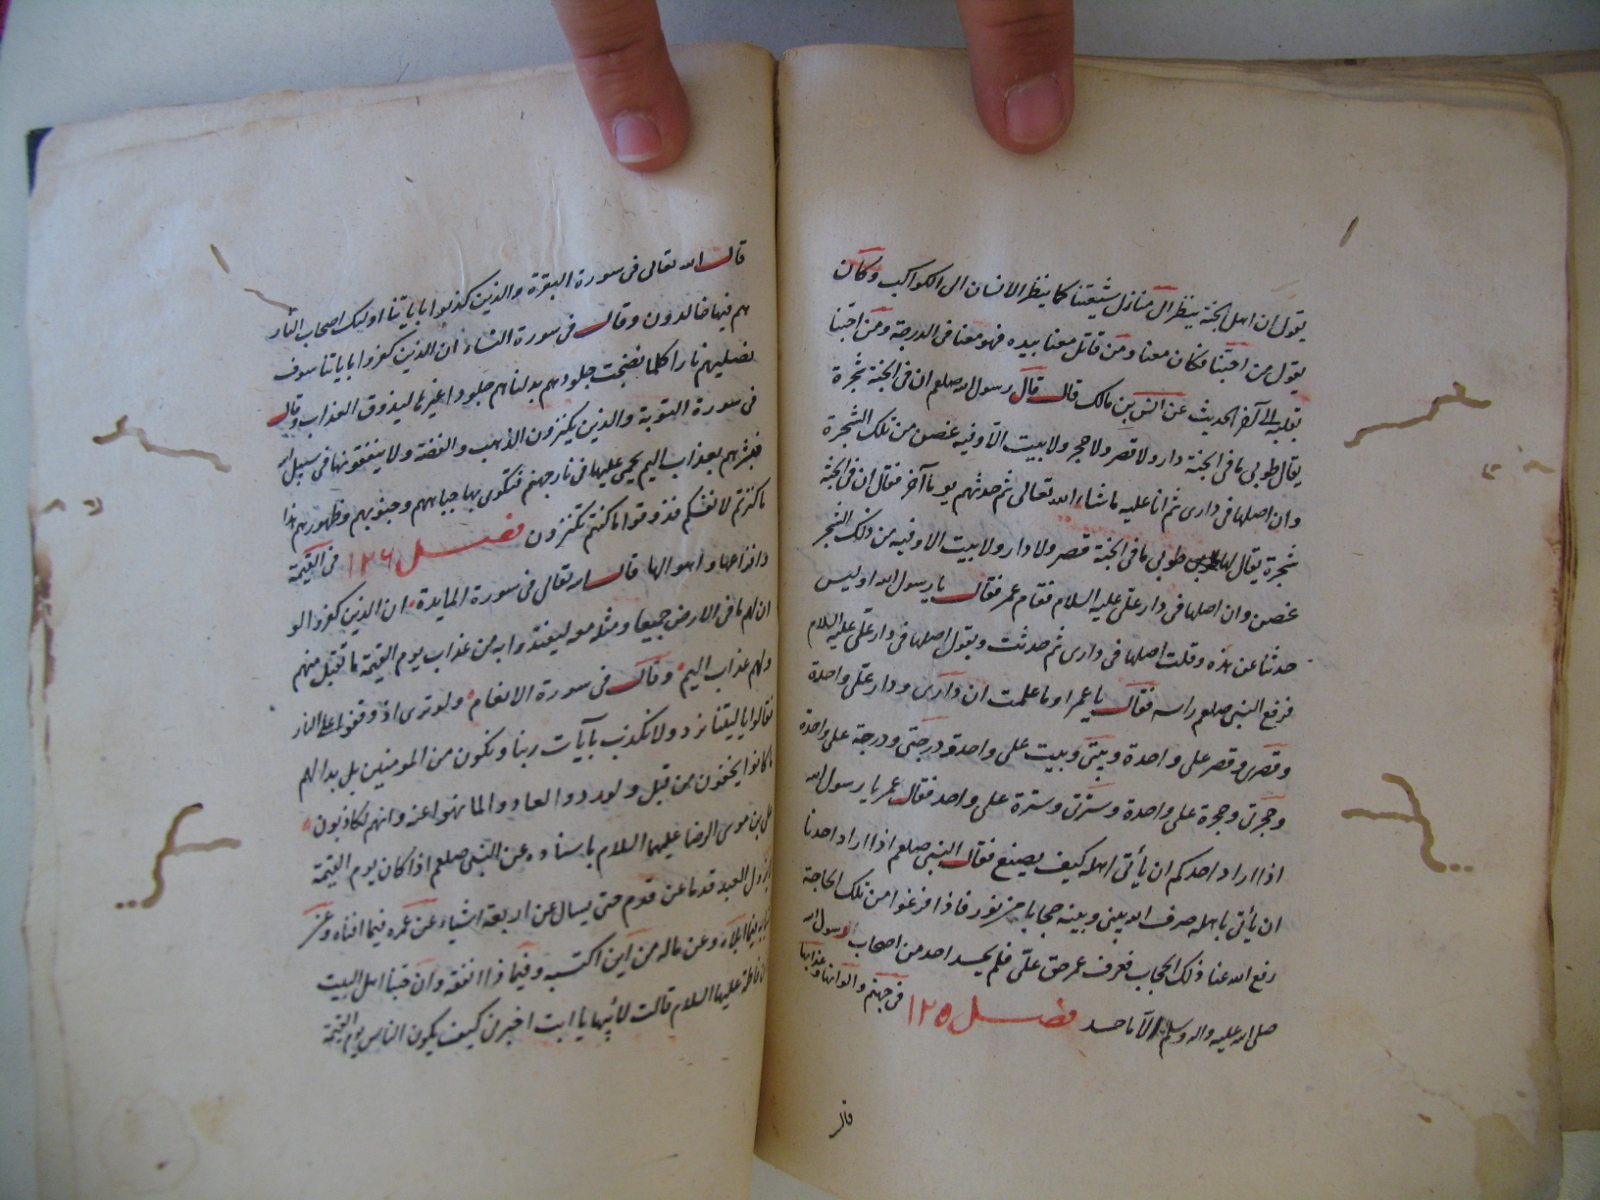 يقول ان اهل الجنة ينظر الى منازل شيعتنا كما ينظر الانسان الى الكواكب وكان
يقول من احبنا فكان معنا ومن قاتل معنا بيده فهو معنا فى الدرجة ومن احبنا
بقلبه الى آخر الحديث عن انس بن مالك قال قال رسول الله صلعم ان فى الجنة شجرة
يقال طوبى ما فى الجنة دار ولا قصر ولا حجر ولا بيت الا وفيه غصن من تلك الشجرة
وان اصلها فى دارى ثم اتا عليه ما شاء الله تعالى ثم حدثهم يوما آخر فقال ان فى الجنة
شجرة يقال لها طوبى ما فى الجنة قصر ولا دار ولا بيت الا وفيه من ذلك الشجر
غصن وان اصلها فى دار على عليه السلام فقام عمر فقال يا رسول الله اوليس
حدثنا عن هذه وقلت اصلها فى دارى ثم حدثت وبقول اصلها فى دار على عليه السلام
فرفع النبى صلعم راسه فقال يا عمر او ما علمت ان دارى ودار على واحدة
وقصرى وقصر على واحدة وبيتى وبيت على واحدة ودرجتى ودرجة على واحدة
وحجرتى وحجرة على واحدة وسترتى وسترة على واحد فقال عمر يا رسول الله
اذا اراد احدكم ان يأتى اهله كيف يصنع فقال النبى صلعم اذا اراد احدنا
ان يأتى باهله صرف الله بينى وبينه حجابا من نور فاذا فرغوا من تلك الحاجة
رفع الله عنا ذلك الحجاب فعرف عمر حق على فلم يحسد احد من اصحاب رسول الله
صلى الله عليه واله وسلم الا ما حسد فصل ١٢٥ فى جهنم والوانها وعذابها
قال
قال الله تعالى فى سورة البقرة والذين كذبوا باياتنا اوليك اصحاب النار
هم فيها خالدون وقال فى سورة النساء ان الذين كفروا باياتنا سوف
نصليهم نارا كلما نضجت جلودهم بدلناهم جلودا غيرها ليذوقوا العذاب وقال
فى سورة التوبة والذين يكنزون الذهب والفضة ولا ينفقونها فى سبيل الله
فبشرهم بعذاب اليم يحمى عليها فى نار جهنم فتكوى بها جباههم وجنوبهم وظهورهم هذا
ما كنزتم لانفسكم فذوقوا ما كنتم تكنزون فصل ١٢٦ فى القيمة
وافزاعها واهوالها قال الله تعالى فى سورة المايدة ان الذين كفروا لو
ان لهم ما فى الارض جميعا ومثله معه ليفتدوا به من عذاب يوم القيمة ما تقبل منهم
ولهم عذاب اليم وقال فى سورة الانعام ولو ترى اذ وقفوا على النار
فقالوا يا ليتنا نرد ولا نكذب بآيات ربنا ونكون من المومنين بل بدا لهم
ما كانوا يخفون من قبل ولو ردوا لعادوا لما نهوا عنه وانهم لكاذبون
على بن موسى الرضا عليهما السلام باسناده عن النبى صلعم اذا كان يوم القيمة
لم تزول العبد قدما عن قدم حتى يسال عن اربعة اشياء عن عمره فيما افناه وعن
شبابه فيما ابلاه وعن ماله من اين اكتسبه وفيما ذا انفقه وان حبنا اهل البيت
ان فاطمة عليها السلام قالت لأبيها يا ابت اخبرنى كيف يكون الناس يوم القيمة